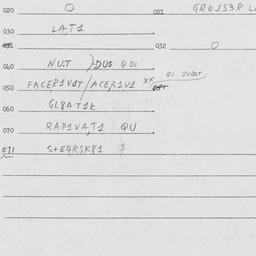 020 O 021 GROJS3R L
030 LAT1
031 032 O
040 NUT )-DUS QDI
050 FACER1V1T/ACER1V1 XX 051 QI SUBST
060 GL8AT1K
070 RAD1VAT1 QU
071 S+E4RSK81 $